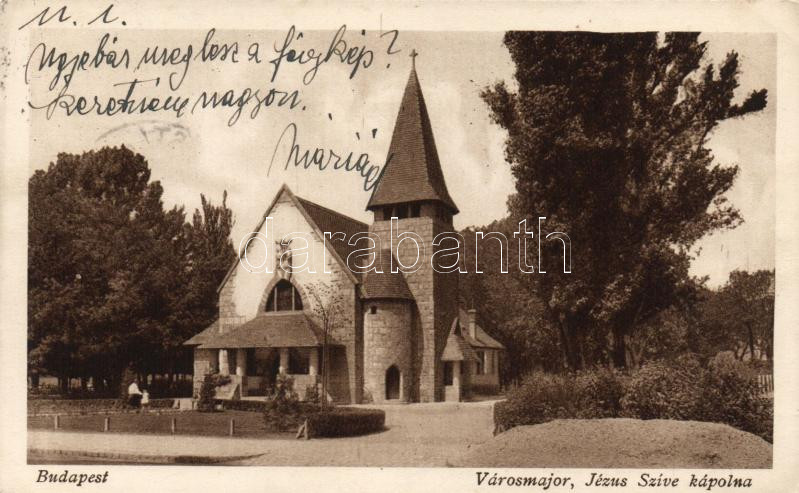 u. i.
Ugyebár meglesz a fénykép?
keretném nagyon.
Máriád
darabanth
Budapest
Városmajor, Jézus Szíve kápolna